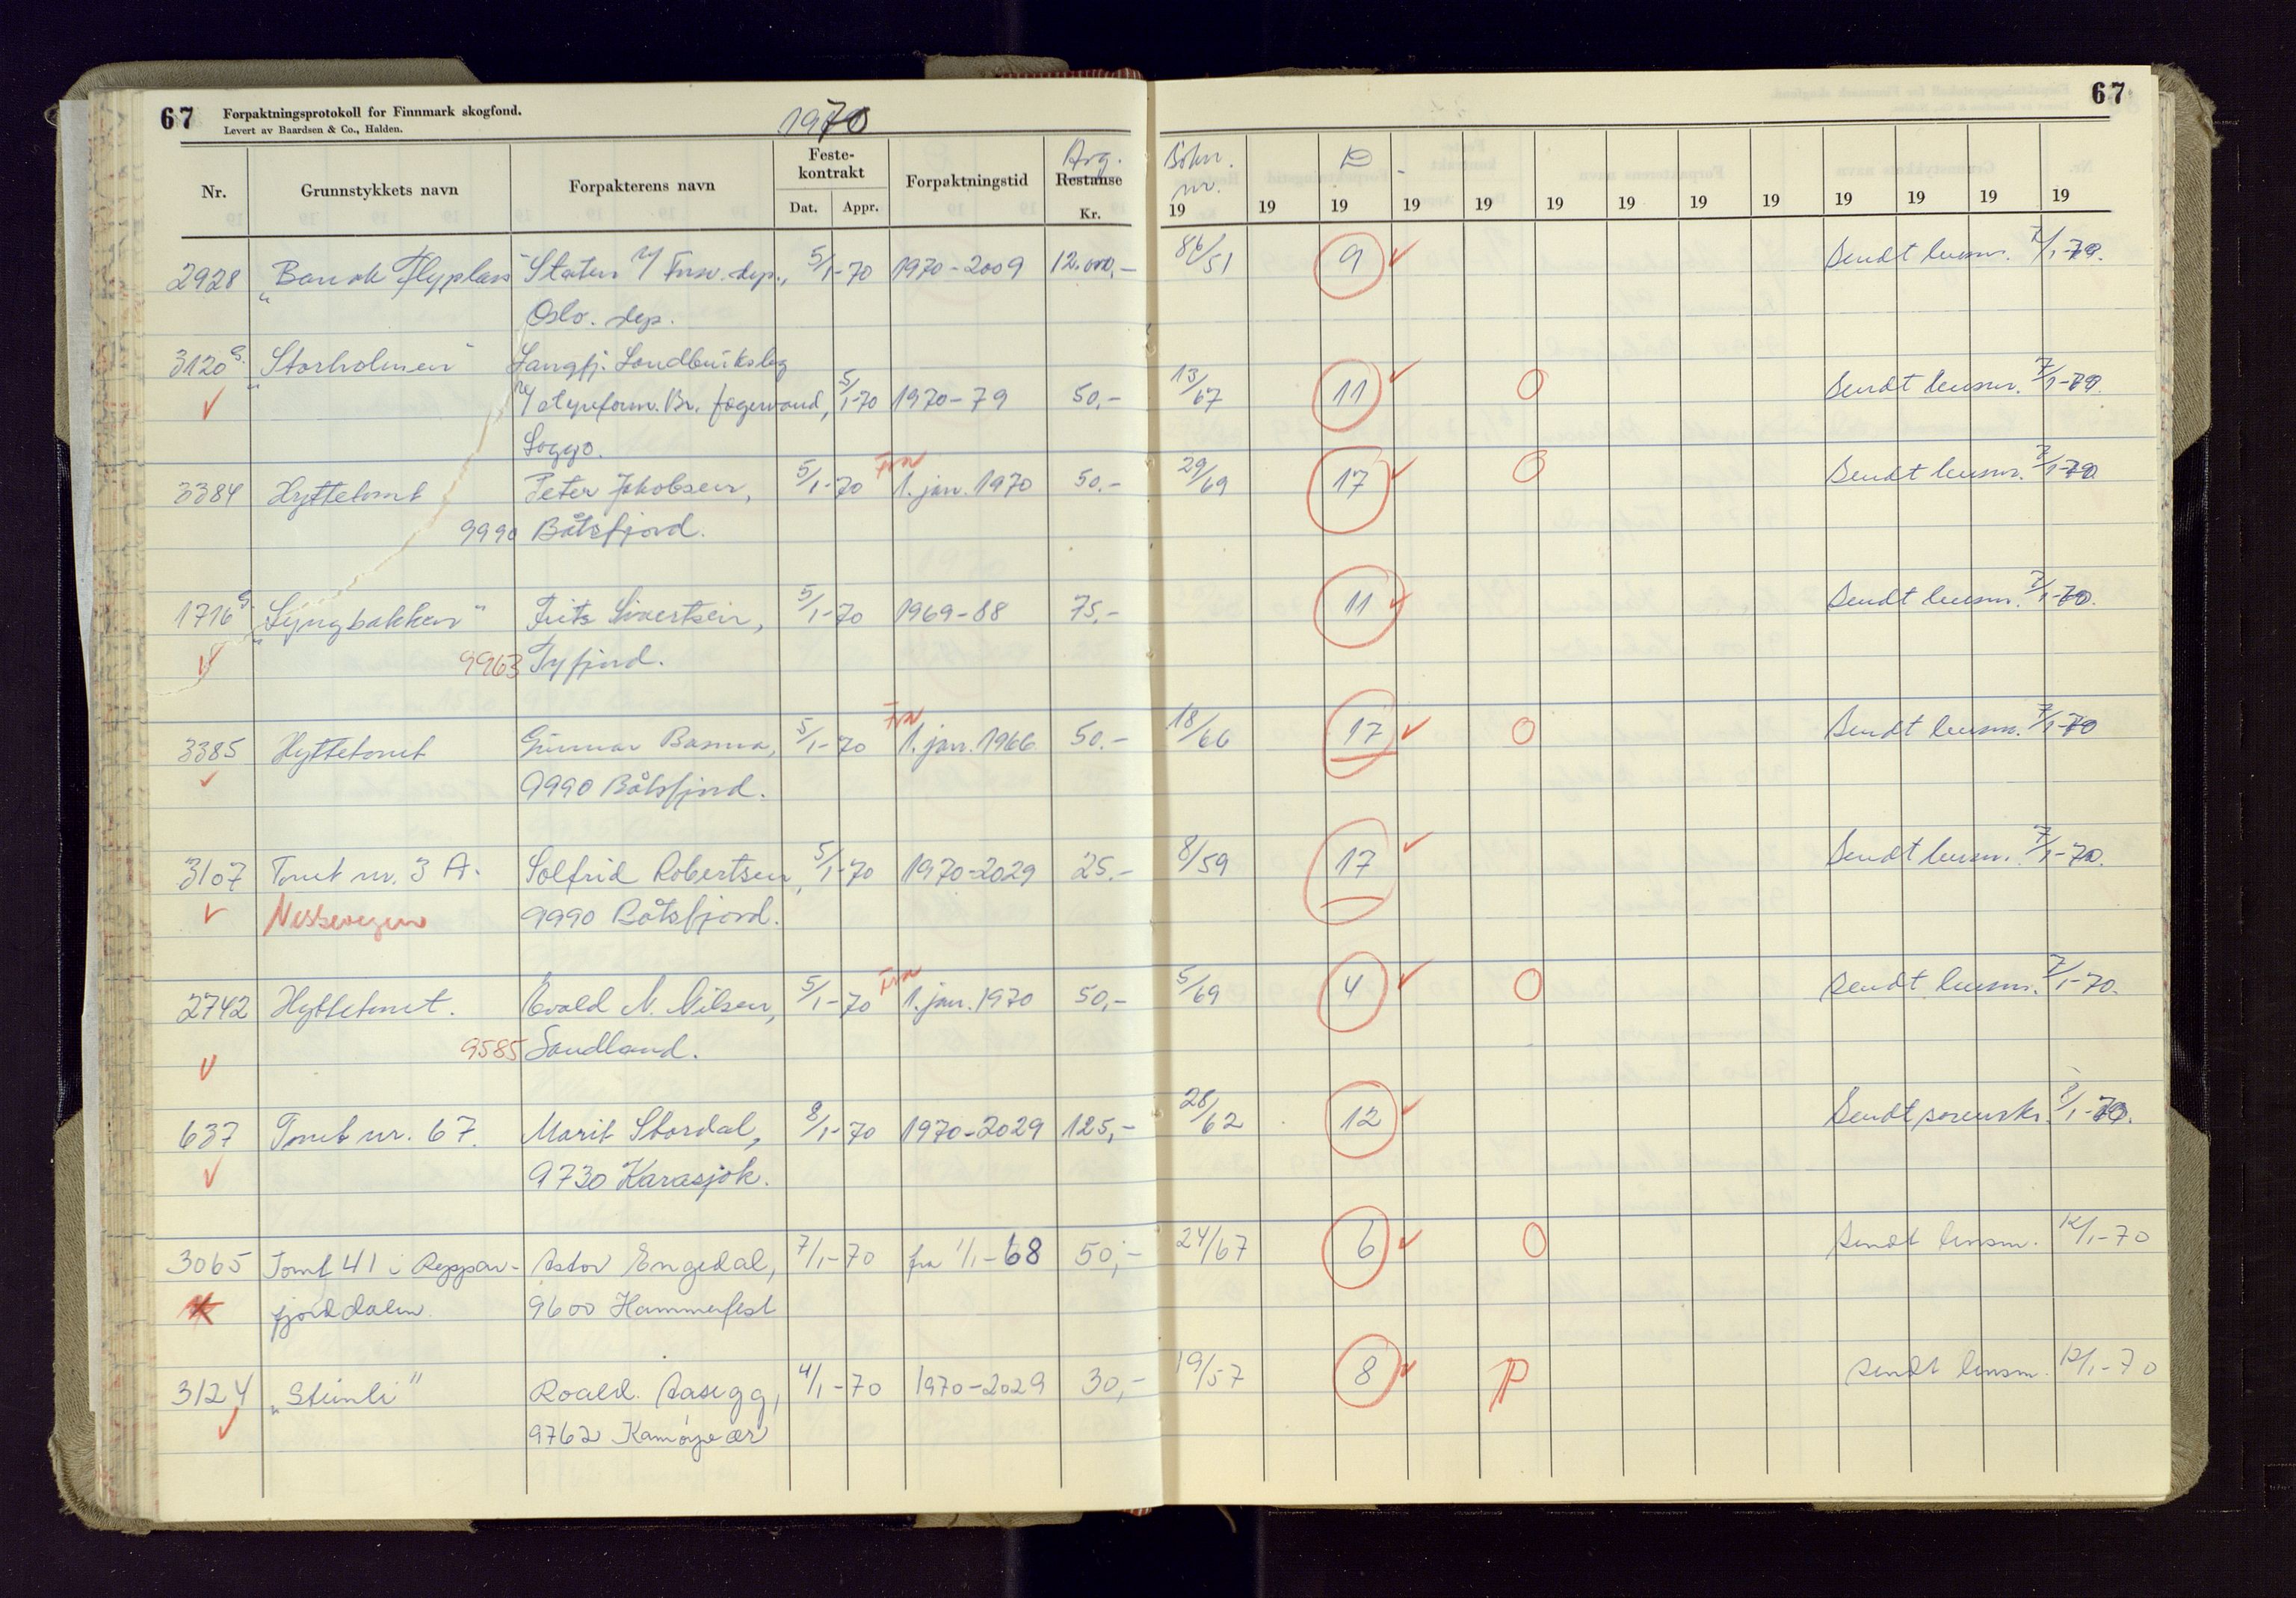 67 Forpaktningsprotokoll for Finnmark skogfond. 1970 67
Levert av Baardsen & Co., Halden.
Nr. Grunnstykkets navn Forpakterens navn Feste-kontrakt Dat. Appr. Forpaktningstid Avg. Restanse Kr. nr. 19 19 19 19 19 19 19 19 19 19 19 19 19
2928 "Banak Flyplass" Staten v/ Forsv. dep., 5/1-70 1970-2009 12.000,- 86/51 9 Sendt lensm. 7/1-70.
Oslo. dep.
3120 S. "Storholmen" Langfj. Landbrukslag
v/ styreform. Br. Jægervand, 5/1-70 1970-79 50,- 13/67 11 O Sendt lensm. 7/1-70.
Loppa.
3384 Hyttetomt Peter Jakobsen, 5/1-70 Fra 1. jan. 1970 50.- 29/69 17 O Sendt lensm. 7/1-70
9990 Båtsfjord.
1716 S. "Lyngbakken" Frits Sivertsen, 5/1-70 1969-88 75,- 11 Sendt lensm. 7/1-70.
9963 Tyfjord.
3385 Hyttetomt Gunnar Basma, 5/1-70 Fra 1. jan. 1966 50.- 18/66 17 O Sendt lensm. 7/1-70
9990 Båtsfjord.
3107 Tomt nr. 3 A. Solfrid Robertsen, 5/1-70 1970-2029 25.- 8/59 17 Sendt lensm. 7/1-70.
Nessevegen 9990 Båtsfjord.
2742 Hyttetomt. Evald N. Nilsen, 5/1-70 Fra 1. jan. 1970 50,- 5/69 4 O Sendt lensm. 7/1-70.
9585 Sandland.
637 Tomt nr. 67. Marit Stordal, 8/1-70 1970-2029 125,- 28/62 12 Sendt sorenskr. 8/1-70.
9730 Karasjok.
3065 Tomt 41 i Reppar- Astor Engedal, 7/1-70 fra 1/1-68 50,- 24/67 6 O Sendt lensm. 12/1-70
fjorddalen. 9600 Hammerfest
3124 "Steinli" Roald. Aasegg, 4/1-70 1970-2029 30,- 19/57 8 P Sendt lensm. 12/1-70
9762 Kamøyvær